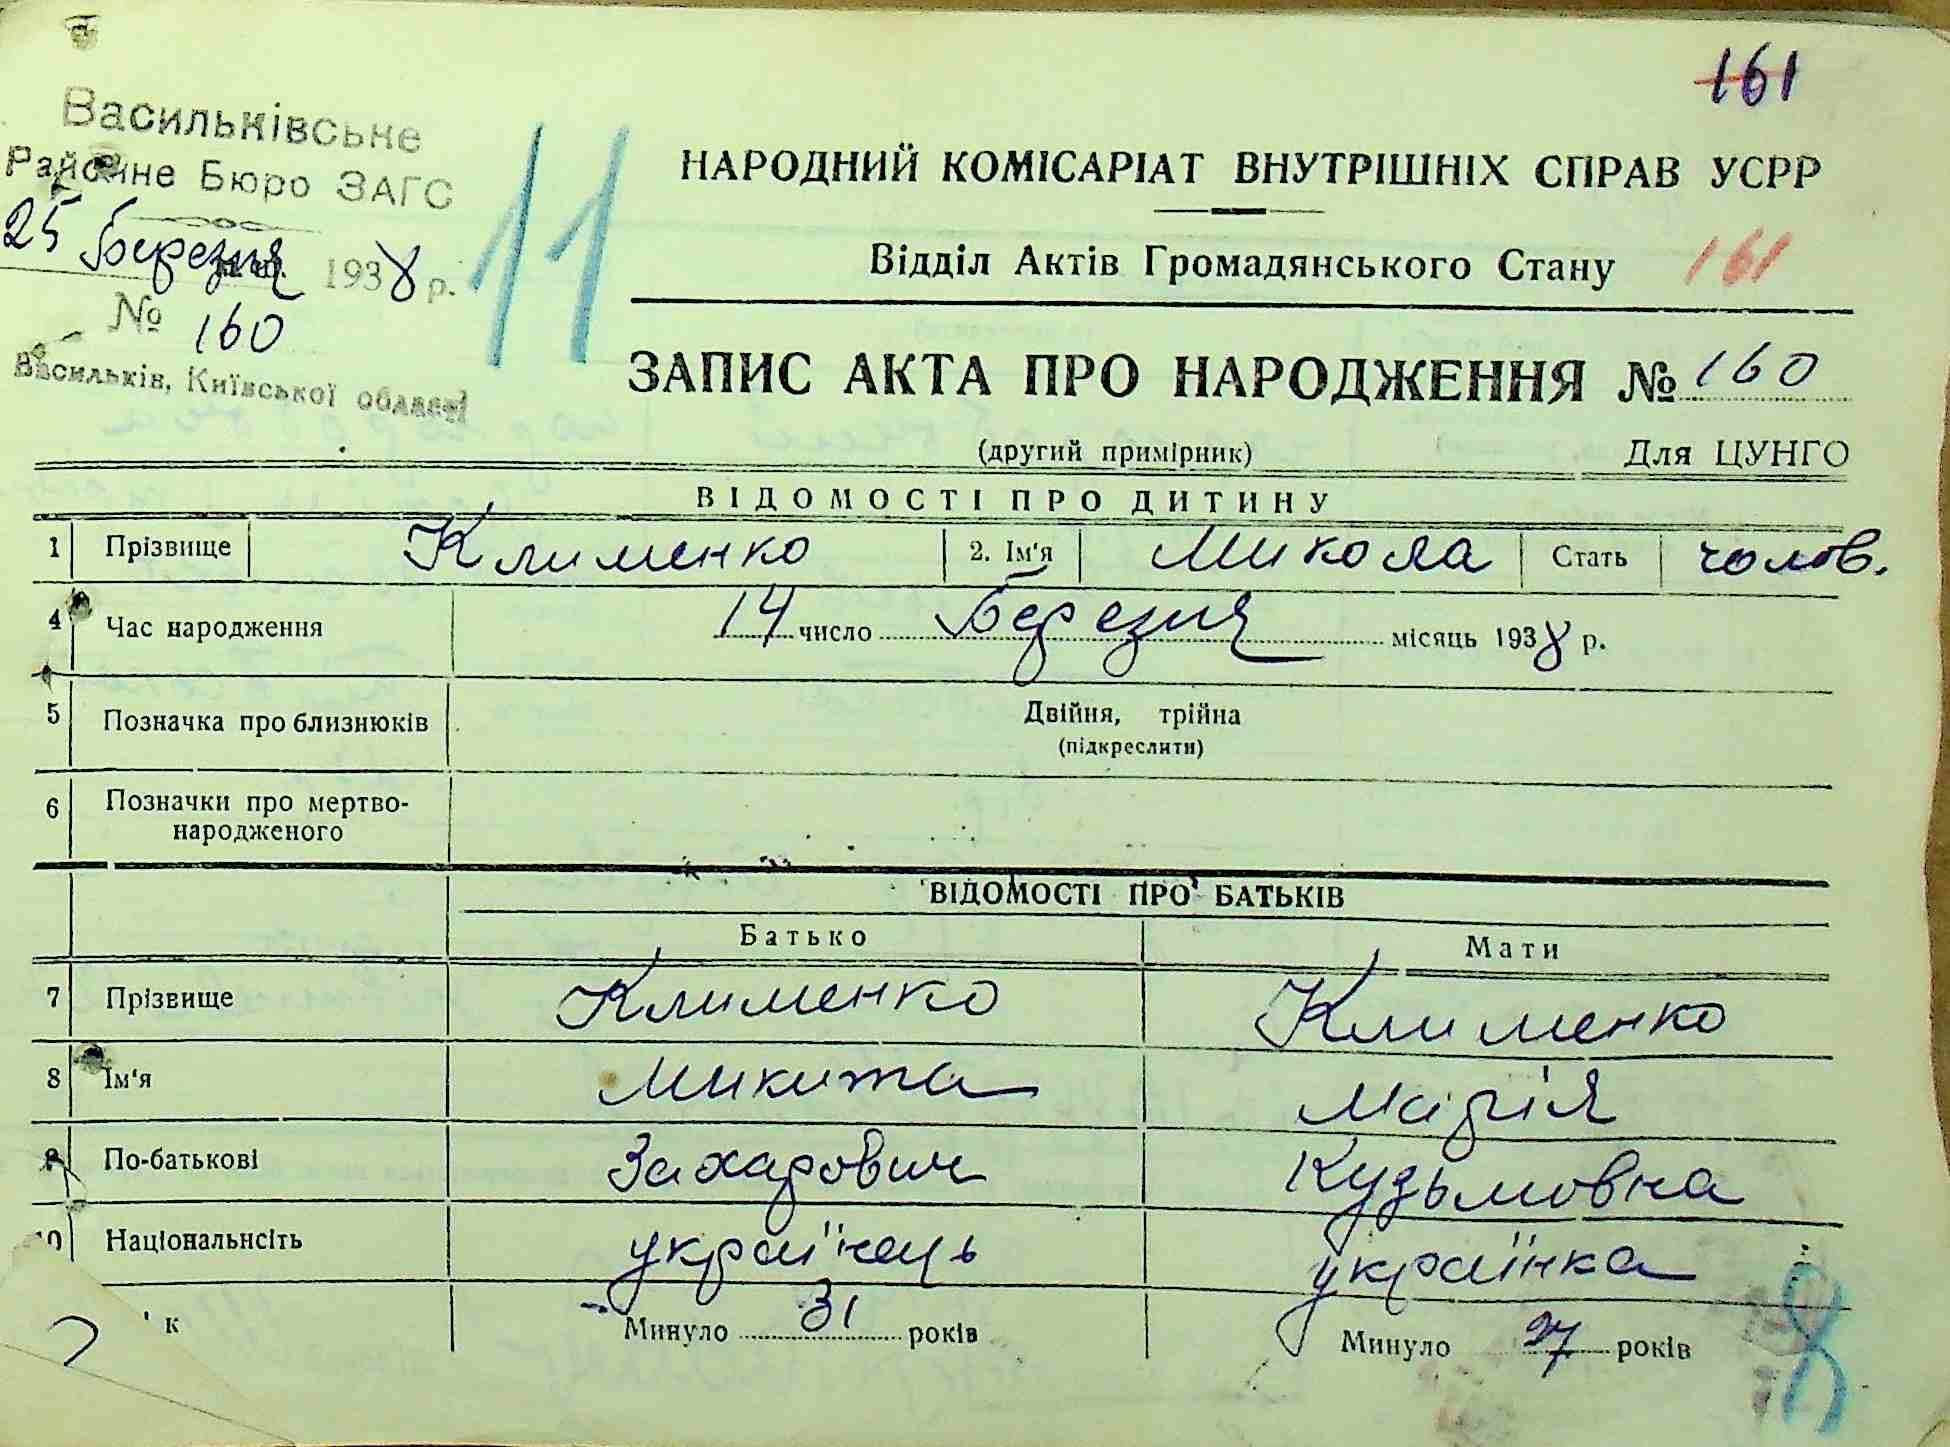 161
Васильківське
Районне Бюро ЗАГС
25 Березня 1938 р.
№ 160
Васильків, Київської області
11
НАРОДНИЙ КОМІСАРІАТ ВНУТРІШНІХ СПРАВ УСРР
Відділ Актів Громадянського Стану 161
ЗАПИС АКТА ПРО НАРОДЖЕННЯ № 160
(другий примірник) Для ЦУНГО
ВІДОМОСТІ ПРО ДИТИНУ
1 Прізвище Клименко 2. Ім'я Микола Стать чолов.
4 Час народження 14 число Березня місяць 1938 р.
5 Позначка про близнюків Двійня, трійна
(підкреслити)
6 Позначки про мертво-
народженого
ВІДОМОСТІ ПРО БАТЬКІВ
Батько Мати
7 Прізвище Клименко Клименко
8 Ім'я Микита Марія
9 По-батькові Захарович Кузьмовна
10 Національнсіть українець українка
к Минуло 31 років Минуло 27 років